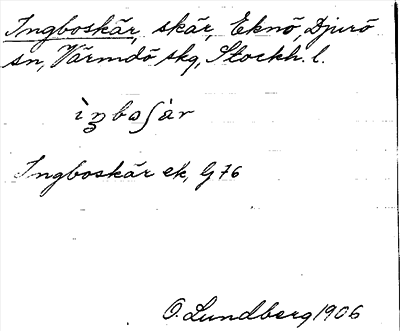 Ingboskär, skär, Eknö, Djurö
sn, Värmdö skg, Stockh. l.
Ingboskär ek, G 76
O. Lundberg 1906